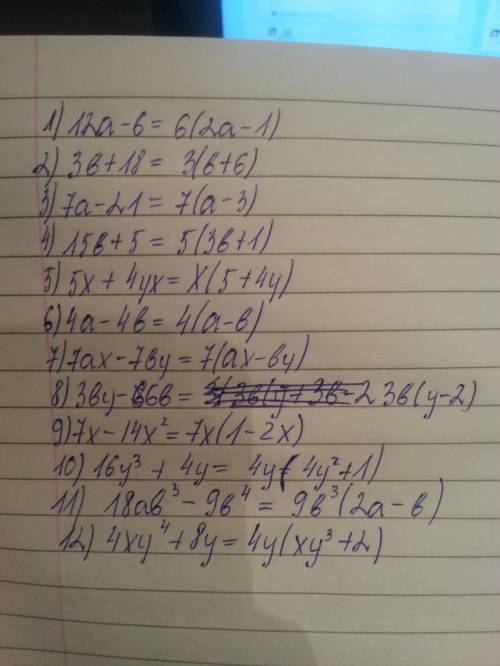 1) 12a-6= 6(2a-1)
2) 3в+18= 3(в+6)
3) 7a-21=7(a-3)
4) 15в+5=5(3в+1)
5) 5x+4yx=x(5+4y)
6) 4a-4в=4(a-в)
7) 7ax-7вy=7(ax-вy)
8) 3вy-6в= 3в(y-2)
9) 7x-14x²=7x(1-2x)
10) 16y³+4y= 4y(4y²+1)
11) 18aв³-9в⁴=9в³(2a-в)
12) 4xy⁴+8y=4y(xy³+2)